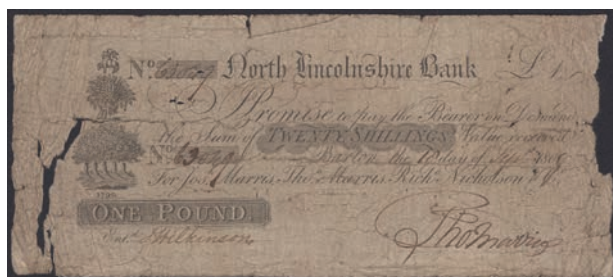 No. North Lincolnshire Bank £1
I Promise to pay the Bearer on Demand
the Sum of TWENTY SHILLINGS Value received
No. Barton the 10 day of
For Jos. Marris, Thos. Marris, Richd. Nicholson &
ONE POUND.
Entd. Wilkinson
Thos Marris